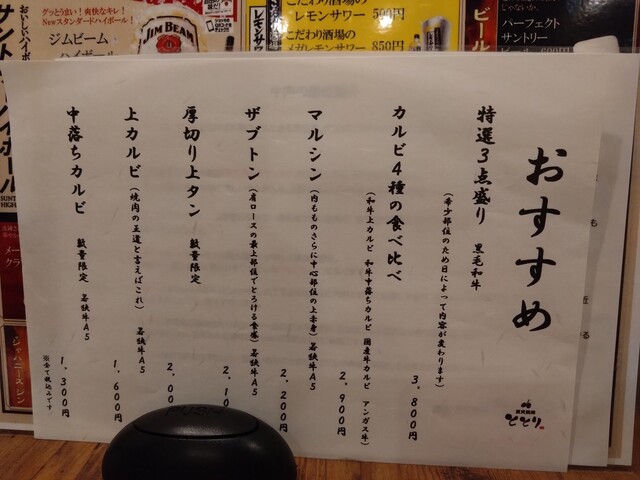 おいしいハイボール
グッとうまい!爽快なキレ!
Newスタンダードハイボール!
ジムビーム
ハイボール
JIM BEAM
レモンサワー 500円
こだわり酒場の
メガレモンサワー 850円
ビール
じゃないか。
パーフェクト
サントリー
ビール 600円
おすすめ
特選3点盛り 黒毛和牛
(希少部位のため日によって内容が変わります)
3,800円
カルビ4種の食べ比べ
(和牛上カルビ 和牛中落ちカルビ 国産牛カルビ アンガス牛)
2,900円
マルシン(内もものさらに中心部位の上赤身)若狭牛A5
2,200円
ザブトン(肩ロースの最上部位でとろける食感)若狭牛A5
2,10
厚切り上タン 数量限定
2,00
上カルビ(焼肉の王道と言えばこれ) 若狭牛A5
1,600円
中落ちカルビ 数量限定 若狭牛A5
1,300円
※全て税込みです
ととり
PUSH